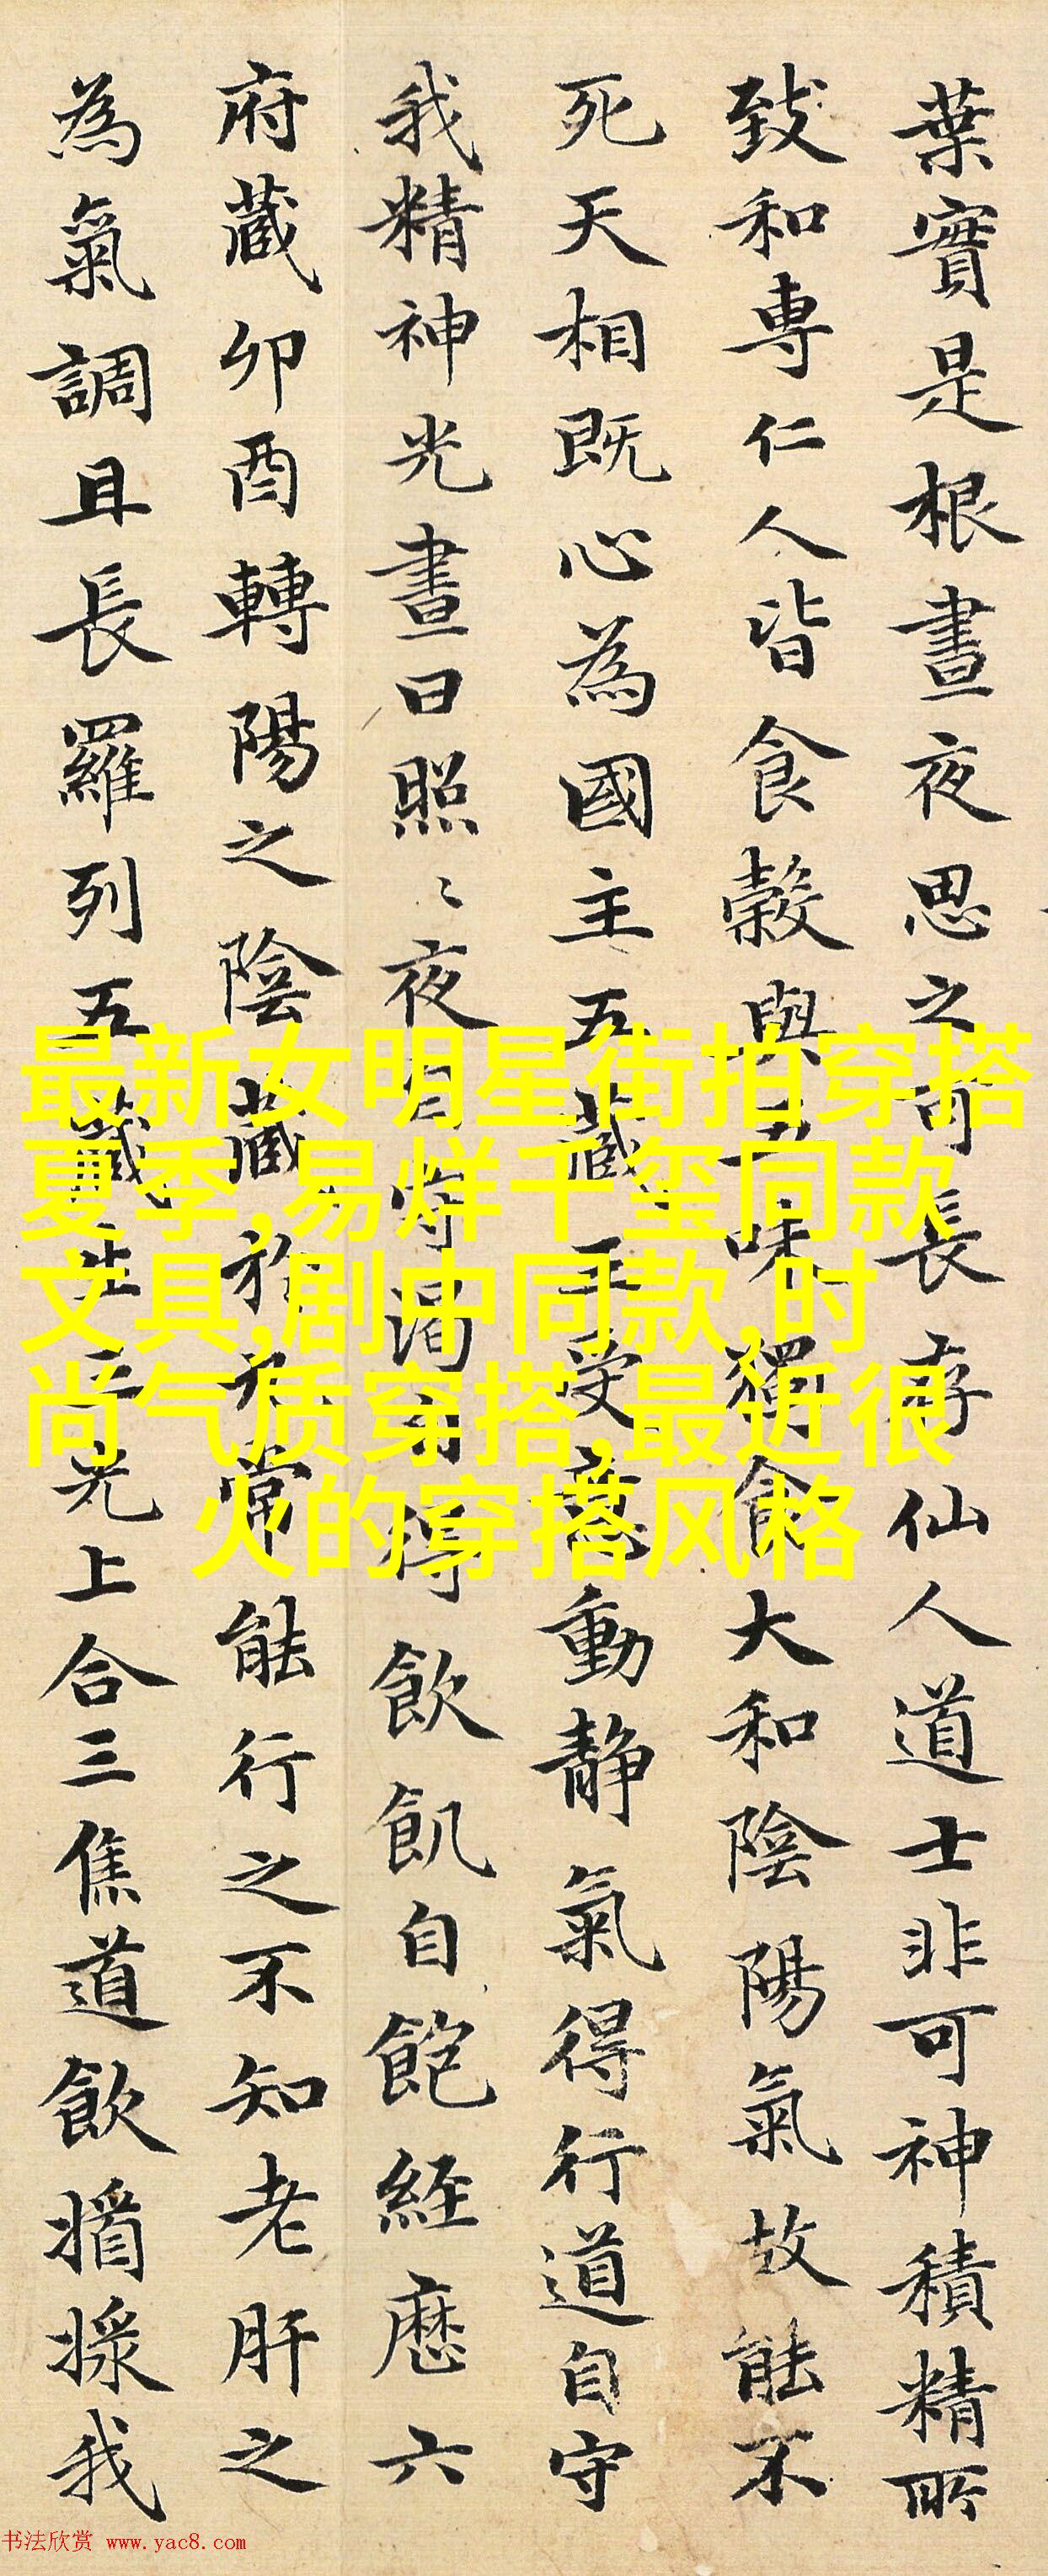 葉實是根晝夜思之可長存仙人道士非可神積精所
致和專仁人皆食穀與五味獨食大和陰陽氣故能不
死天相既心為國主五藏王受意動靜氣得行道自守
我精神光晝日照〻夜自守渴自得飲飢自飽經歷六
府藏卯酉轉陽之陰藏於九常能行之不知老肝之
為氣調且長羅列五藏生三光上合三焦道飲醬採我
最新女明星街拍穿搭
夏季,易烊千玺同款
文具,剧中同款,时
尚气质穿搭,最近很
火的穿搭风格
书法欣赏 www.yac8.com